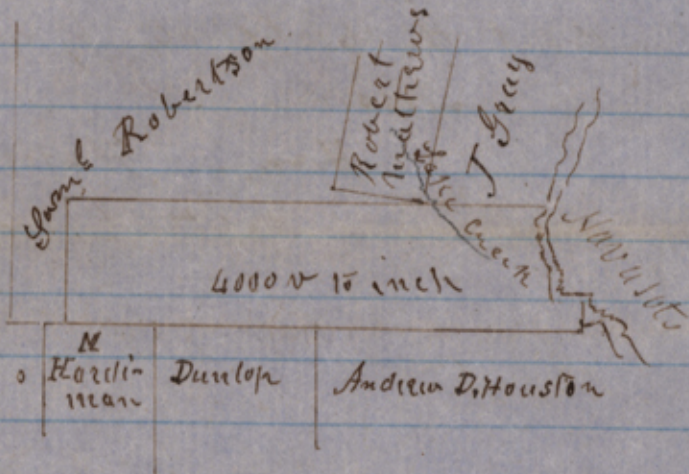 Saml Robertson
Robert
Mathews
J Gray
Creek
Navasota
4000 v to inch
M
Hardi-
man
Dunlop
Andrew D. Houston